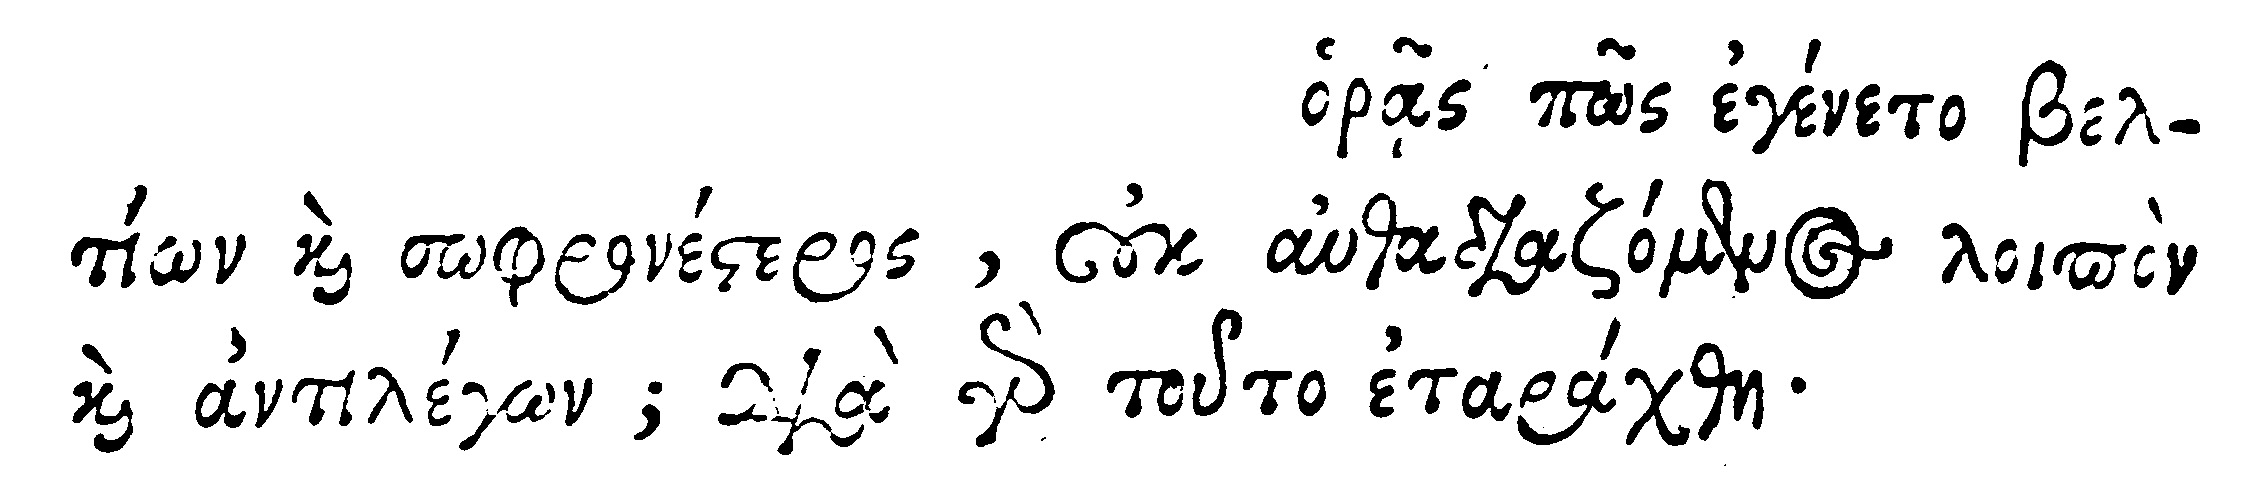 ὁρᾷς πῶς ἐγένετο βελ-
τίων καὶ σωφρονέστερος, οὐκ αὐθαδιαζόμενος λοιπὸν
καὶ ἀντιλέγων; διὰ γὰρ τοῦτο ἐταράχθη.